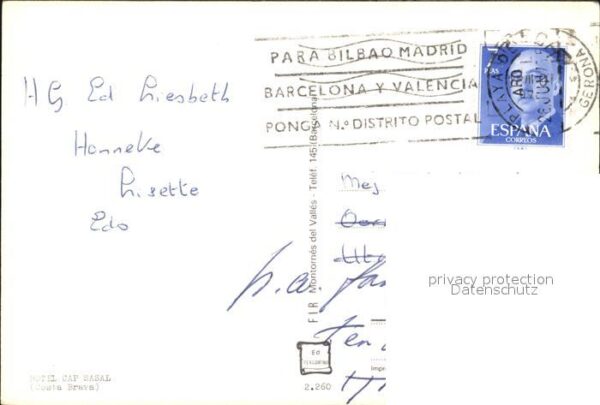 PARA BILBAO MADRID
BARCELONA Y VALENCIA
PONGA N.º DISTRITO POSTAL
PLAYA DE ARO
GERONA
PTAS
ESPAÑA
CORREOS
HG Ed Liesbeth
Hanneke
Lisette
Edo
Mej
p.a.
privacy protection
Datenschutz
FIR Montornés del Vallés - Teléf. 145 (Barcelona)
Ed
2.260
HOTEL CAP SASAL
(Costa Brava)